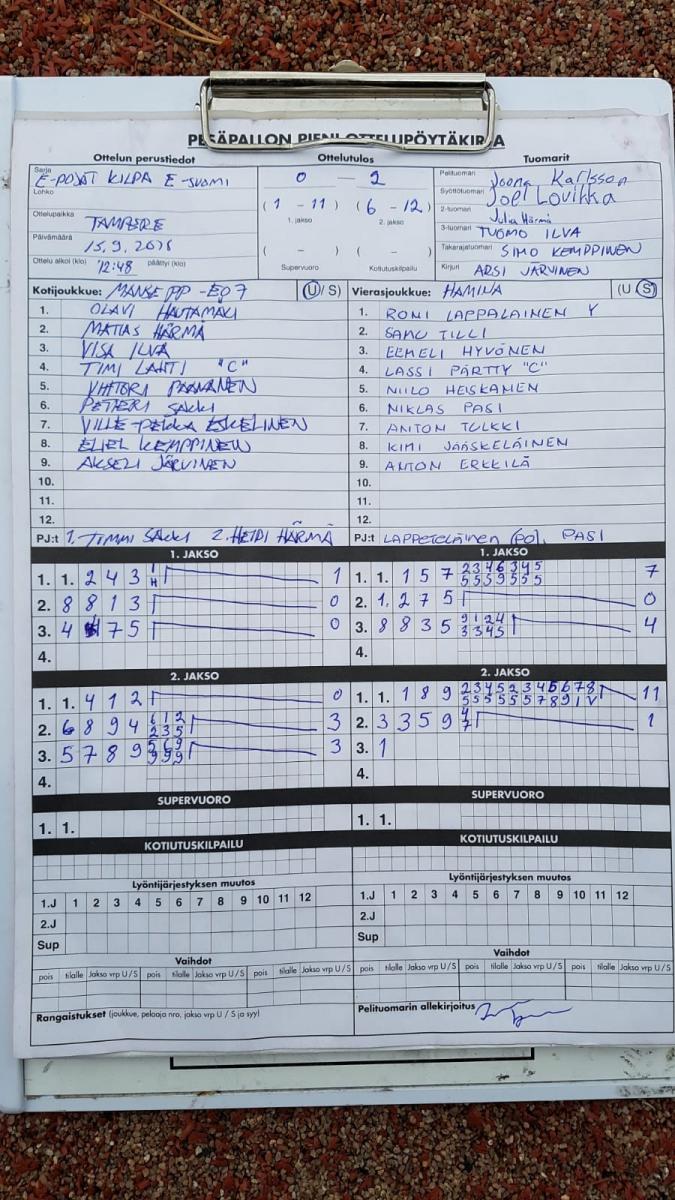 PESÄPALLON PIENI OTTELUPÖYTÄKIRJA
Ottelun perustiedot Ottelutulos Tuomarit
Sarja E-POJAT KILPA E-SUOMI
Lohko
Ottelupaikka TAMPERE
Päivämäärä 15.9.
Ottelu alkoi (klo) 12:48 päättyi (klo)
0 - 2
(1 - 11) (6 - 12)
1. jakso 2. jakso
( - ) ( - )
Supervuoro Kotiutuskilpailu
Pelituomari Joona Karlsson
Syöttötuomari Joel Lovikka
2-tuomari Julia Härmä
3-tuomari TUOMO ILVA
Takarajatuomari SIMO KEMPPINEN
Kirjuri ARSI JÄRVINEN
Kotijoukkue: MANSE PP - E07 (U/S)
1. OLAVI HAUTAMÄKI
2. MATIAS HÄRMÄ
3. VISA ILVA
4. TIMI LAHTI "C"
5. VIHTORI PAANANEN
6. PETTERI SALKI
7. VILLE-PEKKA ESKELINEN
8. ELIEL KEMPPINEN
9. AKSELI JÄRVINEN
10.
11.
12.
PJ:t 1. TIMMI SALKI 2. HEIDI HÄRMÄ
Vierasjoukkue: HAMINA (U S)
1. RONI LAPPALAINEN Y
2. SAMU TILLI
3. EEMELI HYVÖNEN
4. LASSI PÄRTTY "C"
5. NIILO HEISKANEN
6. NIKLAS PASI
7. ANTON TULKKI
8. KIMI JÄÄSKELÄINEN
9. ANTON ERKKILÄ
10.
11.
12.
PJ:t LAPPETELÄINEN (PO), PASI
1. JAKSO
1. 1. 2 4 3 1 H 1
2. 8 8 1 3 0
3. 4 7 5 0
4.
2. JAKSO
1. 1. 4 1 2 0
2. 6 8 9 4 6 1 2 3
2 3 5
3. 5 7 8 9 5 6 9 3
9 9 9
4.
SUPERVUORO
1. 1.
KOTIUTUSKILPAILU
Lyöntijärjestyksen muutos
1.J 1 2 3 4 5 6 7 8 9 10 11 12
2.J
Sup
Vaihdot
pois tilalle Jakso vrp U/S pois tilalle Jakso vrp U/S pois tilalle Jakso vrp U/S
Rangaistukset (joukkue, pelaaja nro, jakso vrp U / S ja syy)
1. JAKSO
1. 1. 1 5 7 2 3 4 6 3 4 5 7
5 5 5 9 5 5 5
2. 1. 2 7 5 0
3. 8 8 3 5 9 1 2 4 4
3 3 4 5
4.
2. JAKSO
1. 1. 1 8 9 2 3 4 5 2 3 4 5 6 7 8 11
5 5 5 5 5 5 7 8 9 1 V
2. 3 3 5 9 4 1
7
3. 1
4.
SUPERVUORO
1. 1.
KOTIUTUSKILPAILU
Lyöntijärjestyksen muutos
1.J 1 2 3 4 5 6 7 8 9 10 11 12
2.J
Sup
Vaihdot
pois tilalle Jakso vrp U/S pois tilalle Jakso vrp U/S pois tilalle Jakso vrp U/S
Pelituomarin allekirjoitus